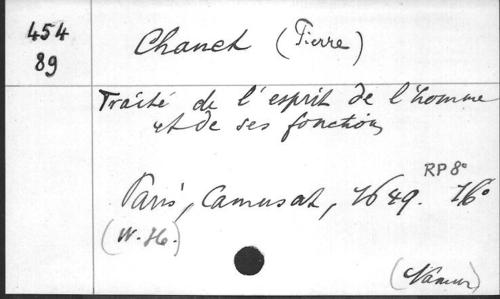 454
89
Chanet (Pierre)
Traité de l'esprit de l'homme
et de ses fonctions
RP 8°
Paris, Camusat, 1649. 16°
(W. H.)
(Namur)